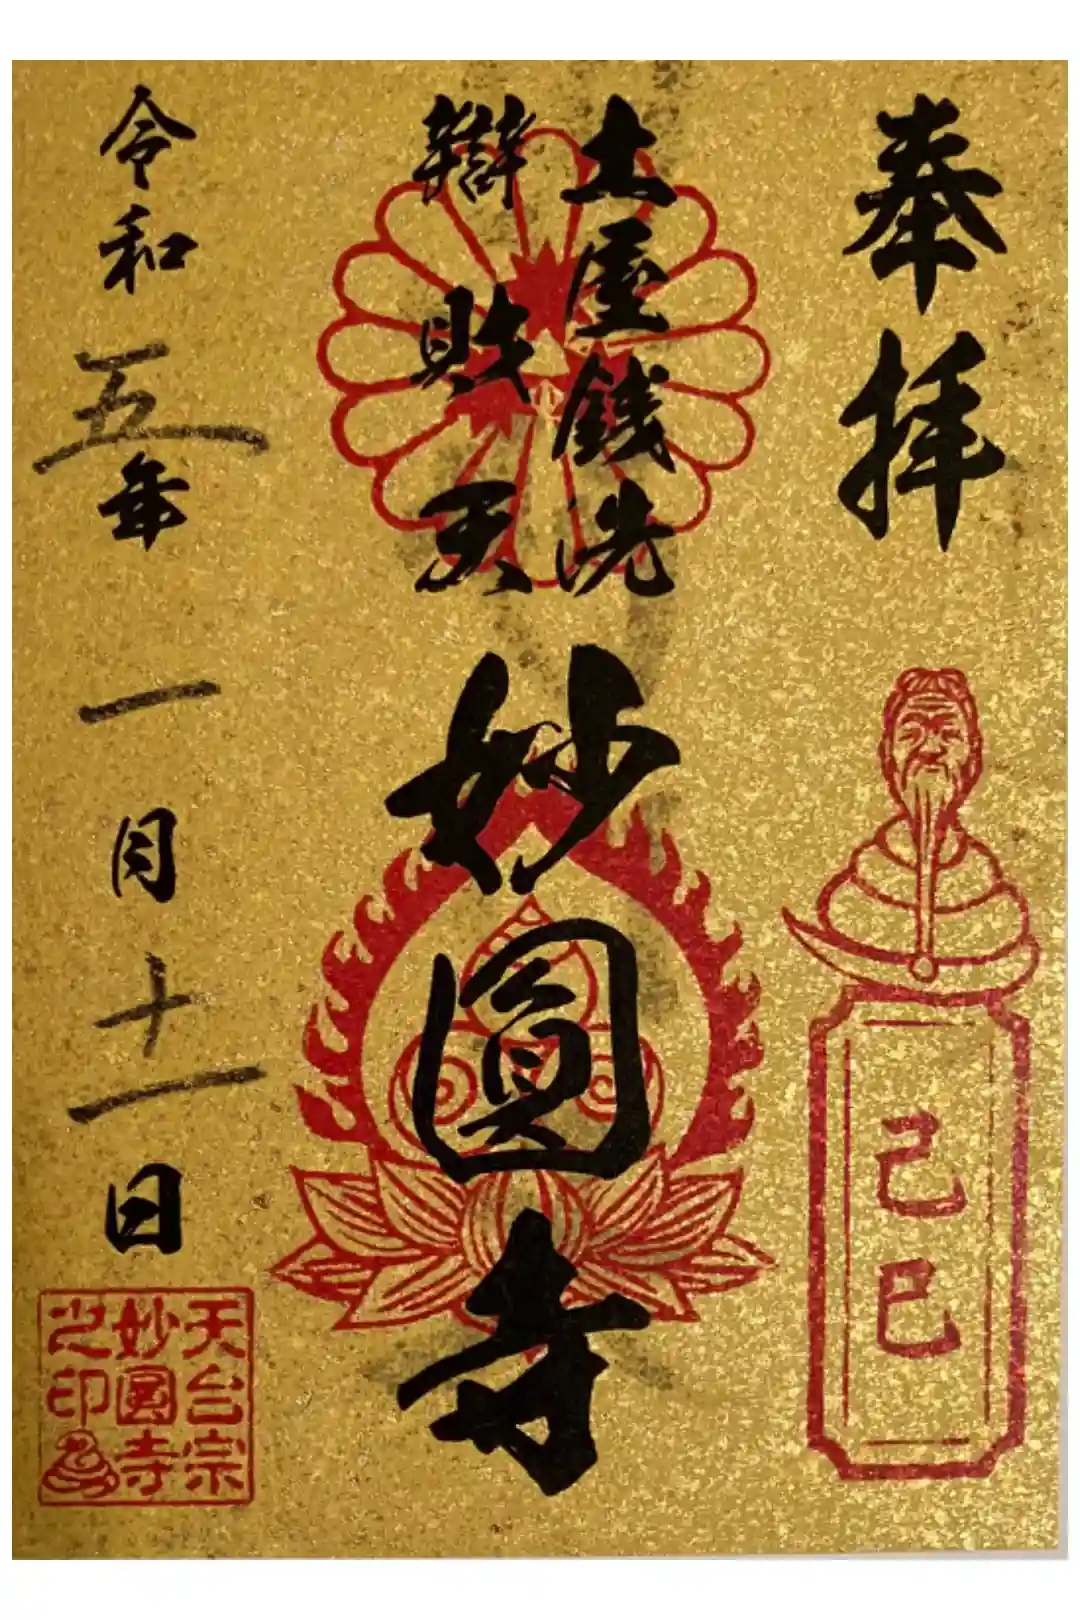 奉拝
己巳
土屋銭洗
辯財天
妙圓寺
令和五年一月十一日
天台宗
妙圓寺
之印